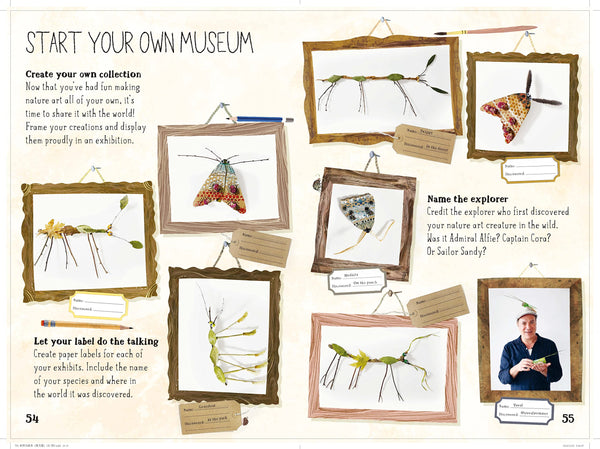 START YOUR OWN MUSEUM
Create your own collection
Now that you've had fun making
nature art all of your own, it's
time to share it with the world!
Frame your creations and display
them proudly in an exhibition.
Let your label do the talking
Create paper labels for each of
your exhibits. Include the name
of your species and where in
the world it was discovered.
54
Name:
Discovered:
Name:
Discovered:
Name:
Discovered: In the park
Name:
Discovered: In the forest
Name:
Discovered:
Name the explorer
Credit the explorer who first discovered
your nature art creature in the wild.
Was it Admiral Alfie? Captain Cora?
Or Sailor Sandy?
Name:
Discovered: On the beach
Name:
Discovered:
Name:
Discovered:
Name:
Discovered:
55